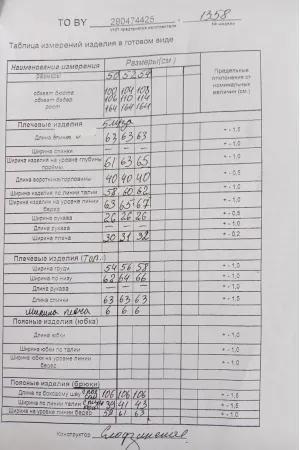 ТО BY 290474425 - 1358
УНП предприятия изготовителя № модели
Таблица измерений изделия в готовом виде
Наименование измерения Размеры(см.) Предельные отклонения от номинальных величин (см.)
Размеры 50 52 54
обхват бюста 100 104 108
обхват бедер 106 110 114
рост 164 164 164
Плечевые изделия блуза + - 1,5
Длина спинки, м. 63 63 63
Ширина спинки — — — + - 1,0
Ширина изделия на уровне глубины проймы 61 63 65 + - 1,0
Длина воротника/горловины 40 40 40 + - 0,5
Ширина изделия по линии талии 58 60 62 + - 1,0
Ширина изделия на уровне линии бедер 63 65 67 + - 1,0
Ширина рукава 26 26 26 + - 0,5
Длина рукава — — — + - 1,0
Ширина плеча 30 31 32 + - 0,2
Плечевые изделия (Топ..)
Ширина груди 54 56 58 + - 1,0
Ширина по низу 62 64 66 + - 1,0
Длина рукава — — — + - 1,0
Длина спинки 63 63 63 + - 1,5
плеча 6 6 6
Поясные изделия (юбка)
Длина юбки + - 1,0
Ширина юбки по талии + - 1,0
Ширина юбки на уровне линии бедер + - 1,0
Поясные изделия (брюки)
Длина по боковому шву 106 106 106 + - 1,5
Ширина по линии талии 39 41 43 + - 1,5
Ширина на уровне линии бедер 59 61 63 + - 1,0
Конструктор